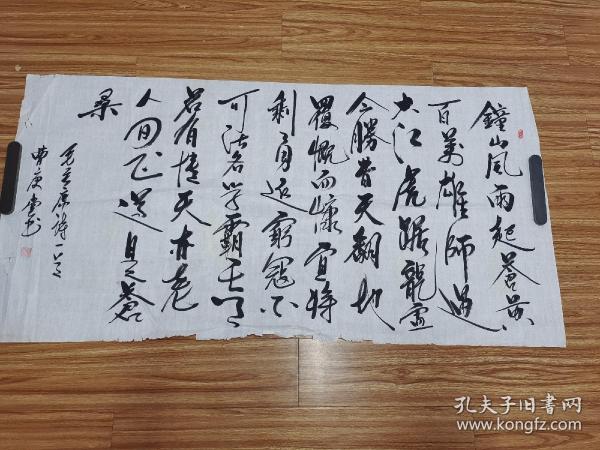 鐘山風雨起蒼黃
百萬雄師過
大江虎踞龍盘
今勝昔天翻地
覆慨而慷宜將
剩勇追窮寇不
可沽名学霸王天
若有情天亦老
人间正道是蒼
桑
毛主席詩一首
孔夫子旧书网
www.kongfz.com